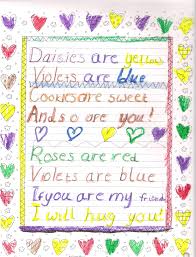 Daisies are yellow
Violets are blue
Cookies are sweet
And so are you!
Roses are red
Violets are blue
If you are my friends
I will hug you!